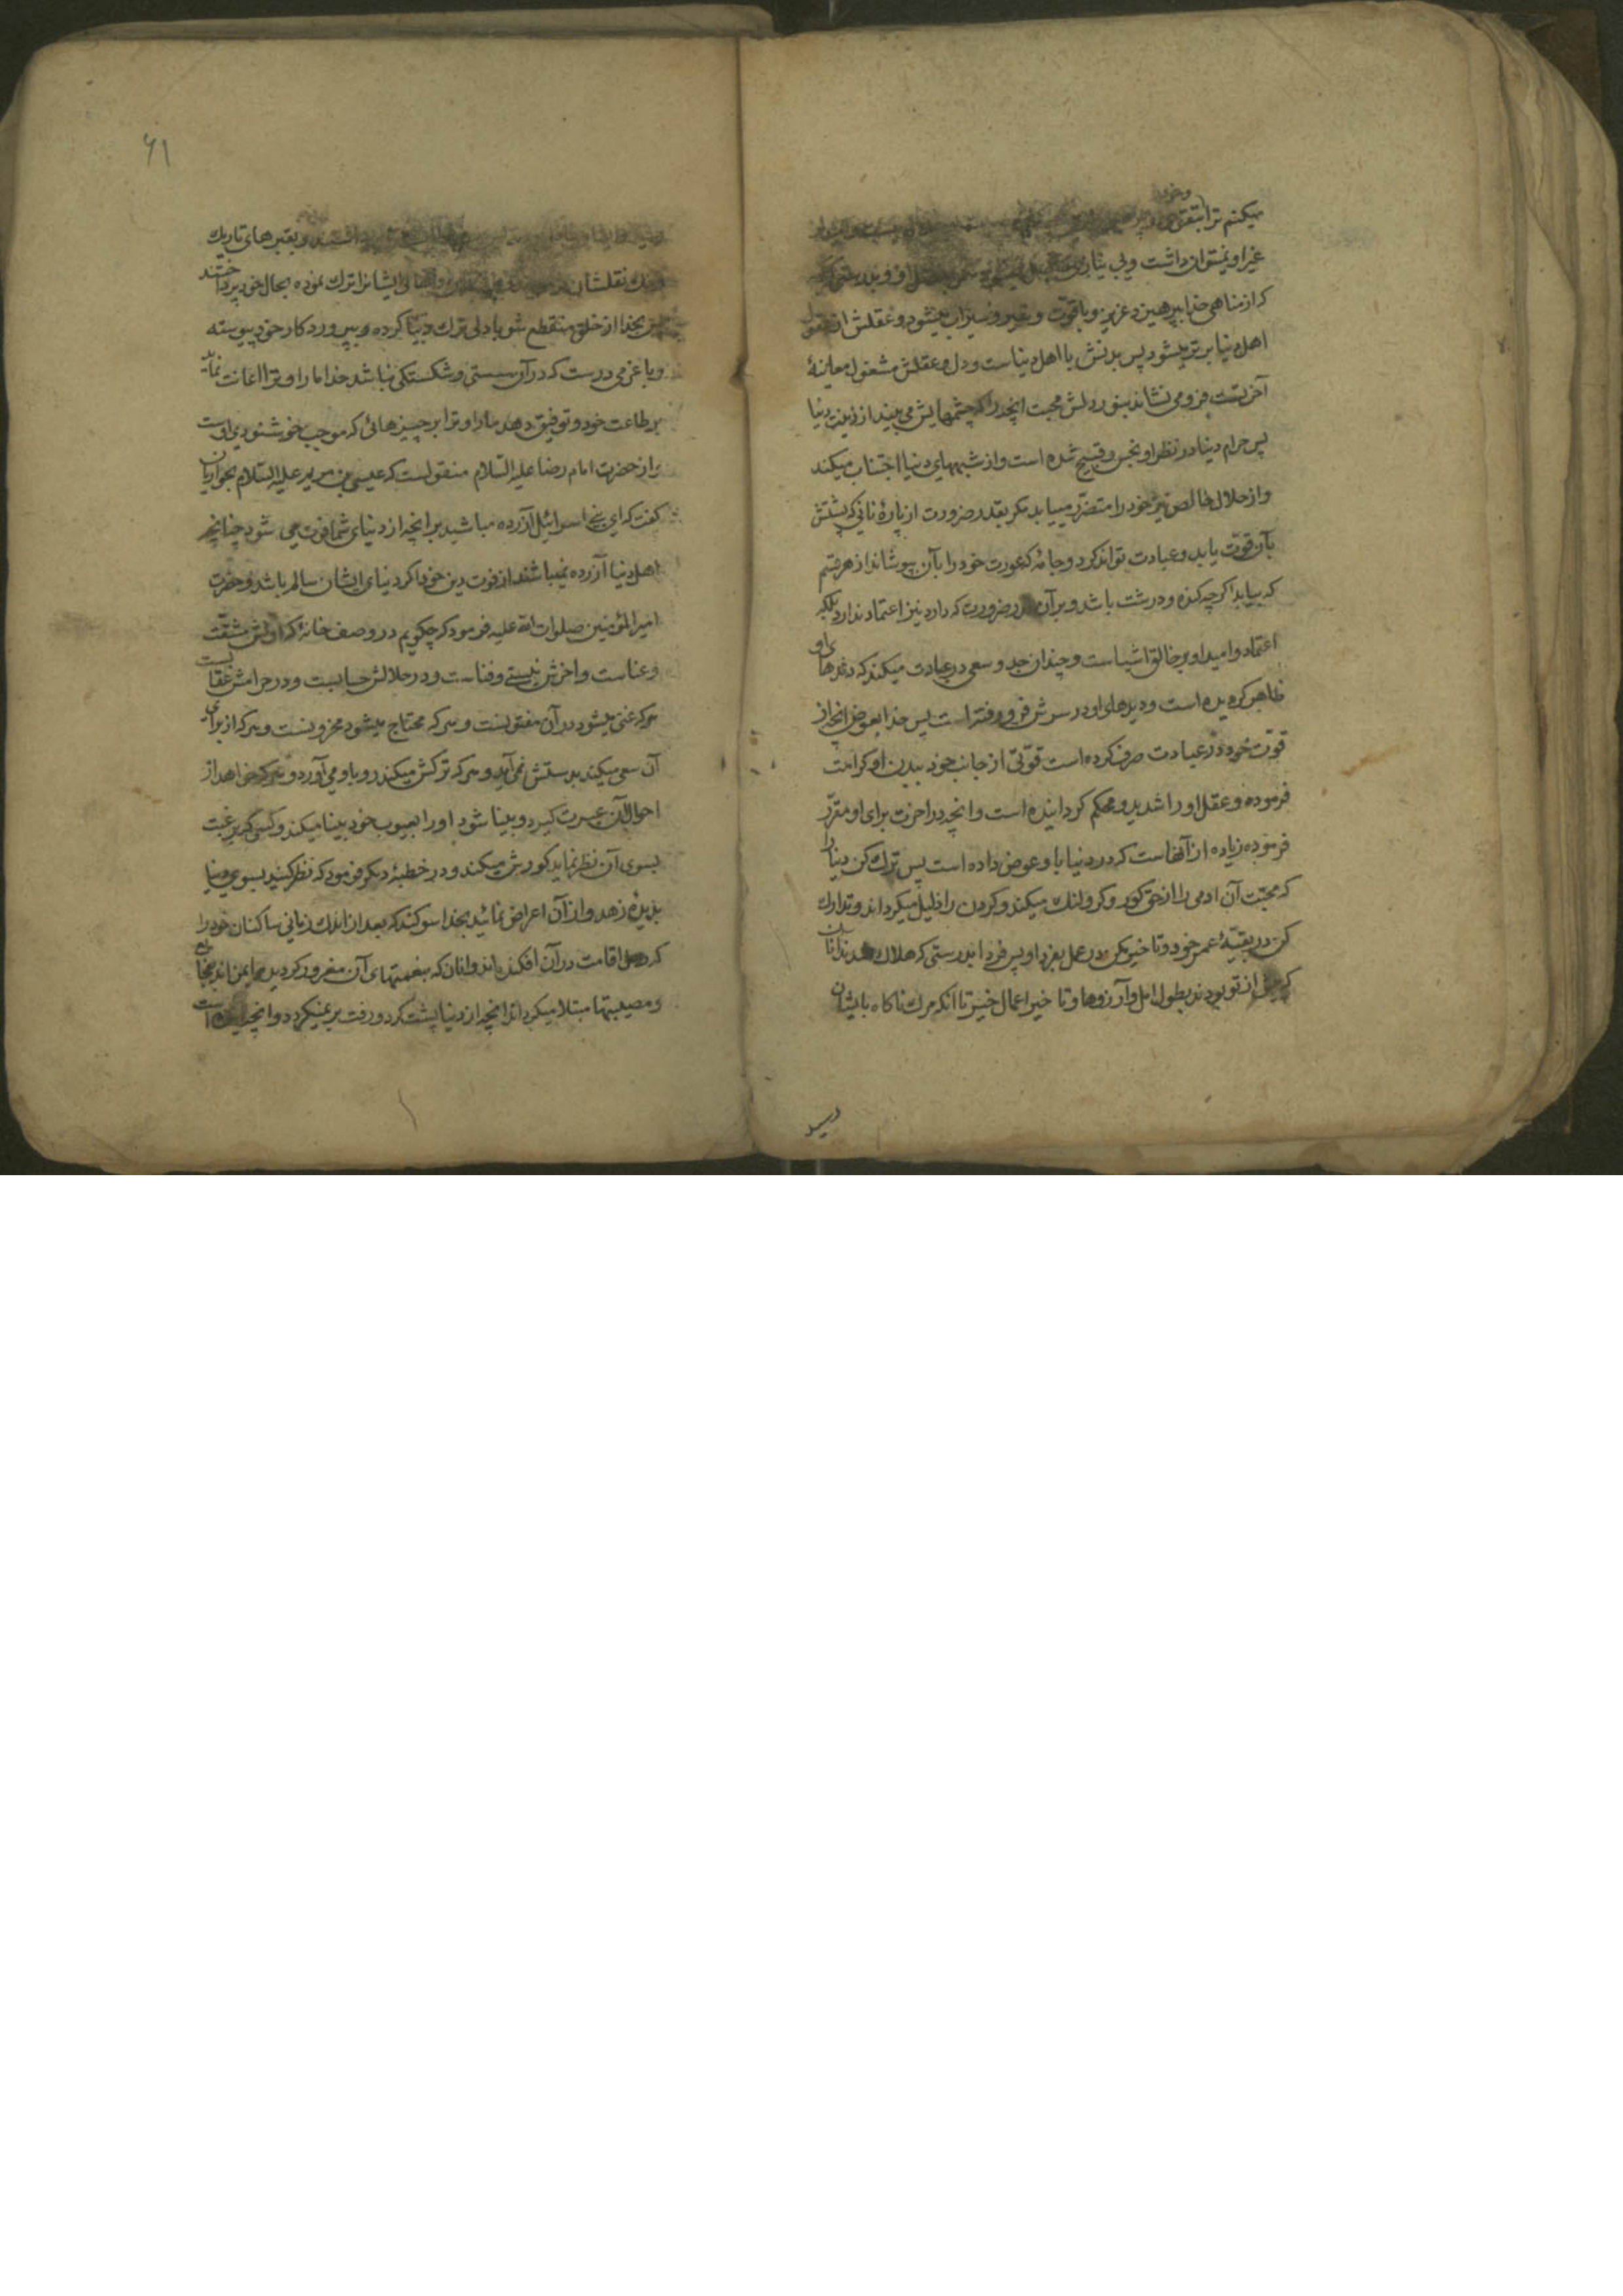 وخود
میکنم ترا بتقوی
غیر او نمیتوان داشت و بی نیازی
که از مناهی خدا بپرهیزد عزیز و باقوت و سیر و سیراب میشود و عقلش از عقول
اهل دنیا برتر میشود پس بدنش با اهل دنیاست و دل و عقلش مشغول معاینهٔ
آخرتست فرو می نشاند بنور دلش محبت انچه را که چشمهایش می بیند از زینت دنیا
پس حرام دنیا در نظر او نجس و قبیح شده است و از شبههای دنیا اجتناب میکند
و از حلال خالص نیز خود را متضرر میباید مکر بقدر ضرورت از پارهٔ نانی که پشتش
بآن قوّت یابد و عبادت تواند کرد و جامهٔ که عورت خود را بآن بپوشاند از هر قسم
که بیابد اکرچه کنده و درشت باشد و بر آن قدر ضرورت که دارد نیز اعتماد ندارد بلکه
اعتماد و امید او بر خالق اشیاست و چندان جد و سعی در عبادت میکند که دندهای او
ظاهر کردیده است و دیدهای او در سرش فرو رفته است پس خدا بعوض انچه از
قوّت خود در عبادت صرف کرده است قوّتی از جانب خود ببدن او کرامت
فرموده و عقل او را شدید و محکم کردانیده است و انچه در اخرت برای او مقرّر
فرموده زیاده از آنهاست که در دنیا باو عوض داده است پس ترک کن دنیا را
که محبّت آن ادمی را از حق کور و کر و لنک میکند و کردن را ذلیل میکرداند و تدارک
کن در بقیّهٔ عمر خود و تاخیر مکن در عمل بفردا و پس فردا بدرستی که هلاک شدند آنان
که پیش از تو بودند بطول امل و آرزوها و تاخیر اعمال خیر تا آنکه مرک ناکاه بایشان
رسید
۶۱
داشتند و بقبرهای تاریک
نقلشان ایشانرا ترک نموده بحال خود پرداختند
پس بخدا از خلق منقطع شو با دلی ترک دنیا کرده و بپروردکار خود پیوسته
و با عزمی درست که در آن سستی و شکستکی نباشد خدا ما را و ترا اعانت نماید
بر طاعت خود و توفیق دهد ما را و ترا بر چیزهائی که موجب خوشنودی اوست
و از حضرت امام رضا علیه السّلام منقولست که عیسی بن مریم علیه السّلام بحواریان
کفت که ای بنی اسرائیل آزرده مباشید بر انچه از دنیای شما فوت می شود چنانچه
اهل دنیا آزرده نمیباشند از فوت دین خود اکر دنیای ایشان سالم باشد و حضرت
امیر المؤمنین صلوات الله علیه فرمود که چکویم در وصف خانهٔ که اولش مشقّت
و عناست و اخرش نیستی و فناست و در حلالش حسابست و در حرامش عقابست
هرکه غنی میشود در آن مفتونست و هرکه محتاج میشود محزونست و هرکه از برای
آن سعی میکند بدستش نمی آید و هرکه ترکش میکند رو باو می آورد و هرکه خواهد از
احوال آن عبرت کیرد و بینا شود او را بعیوب خود بینا میکند و کسی که برغبت
بسوی آن نظر نماید کورش میکند و در خطبهٔ دیکر فرمود که نظر کنید بسوی دنیا
بدیدهٔ زهد و از آن اعراض نمائید بخدا سوکند که بعد از اندک زمانی ساکنان خود را
که رحل اقامت در آن افکنده اند و انان که بنعمتهای آن مغرور کردیده ایمن اند
و مصیبتها مبتلا میکرداند انچه از دنیا پشت کرد و رفت برنمیکردد و انچه